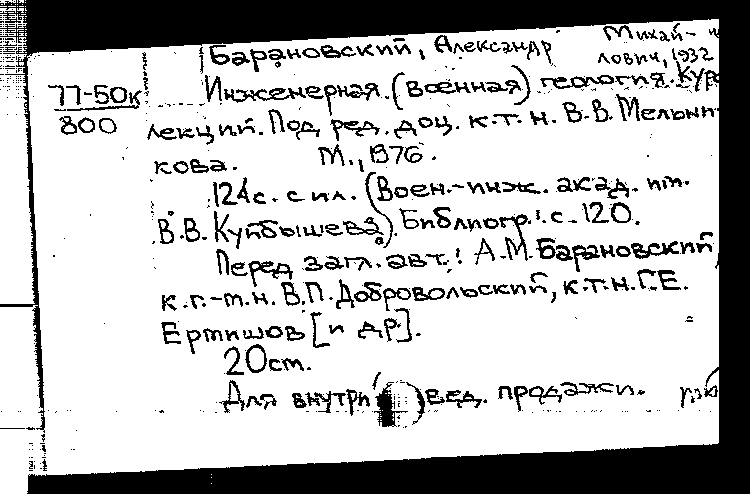 Барановский, Александр Михай-
лович, 1932
77-50к
800
Инженерная (военная) геология. Курс
лекций. Под ред. доц. к.т.н. В.В. Мельни-
кова. М., 1976.
124с. с ил. (Воен.-инж. акад. им.
В.В. Куйбышева). Библиогр.: с. 120.
Перед загл. авт.: А.М. Барановский,
к.г.-м.н. В.П. Добровольский, к.т.н. Г.Е.
Ертишов [и др].
20см.
Для внутри вед. продажи.